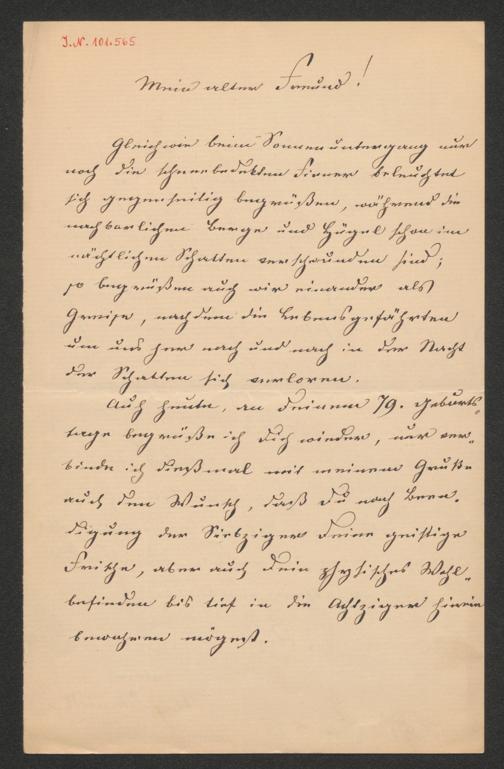 J.N. 101.565
Mein alter Freund!
Gleichwie beim Sonnenuntergang nur
noch die schneebedekten Firner beleuchtet
sich gegenseitig begrüßen, während die
nachbarlichen Berge und Hügel schon im
nächtlichen Schatten verschwunden sind;
so begrüßen auch wir einander als
Greise, nachdem die Lebensgefährten
um uns her nach und nach in der Nacht
der Schatten sich verloren.
Auch heute, an Deinem 79. Geburts-
tage begrüße ich Dich wieder, nur ver-
binde ich dießmal mit meinem Gruße
auch den Wunsch, daß Du nach Been-
digung der Siebziger Deine geistige
Frische, aber auch Dein physisches Wohl-
befinden bis tief in die Achtziger hinein
bewahren mögest.